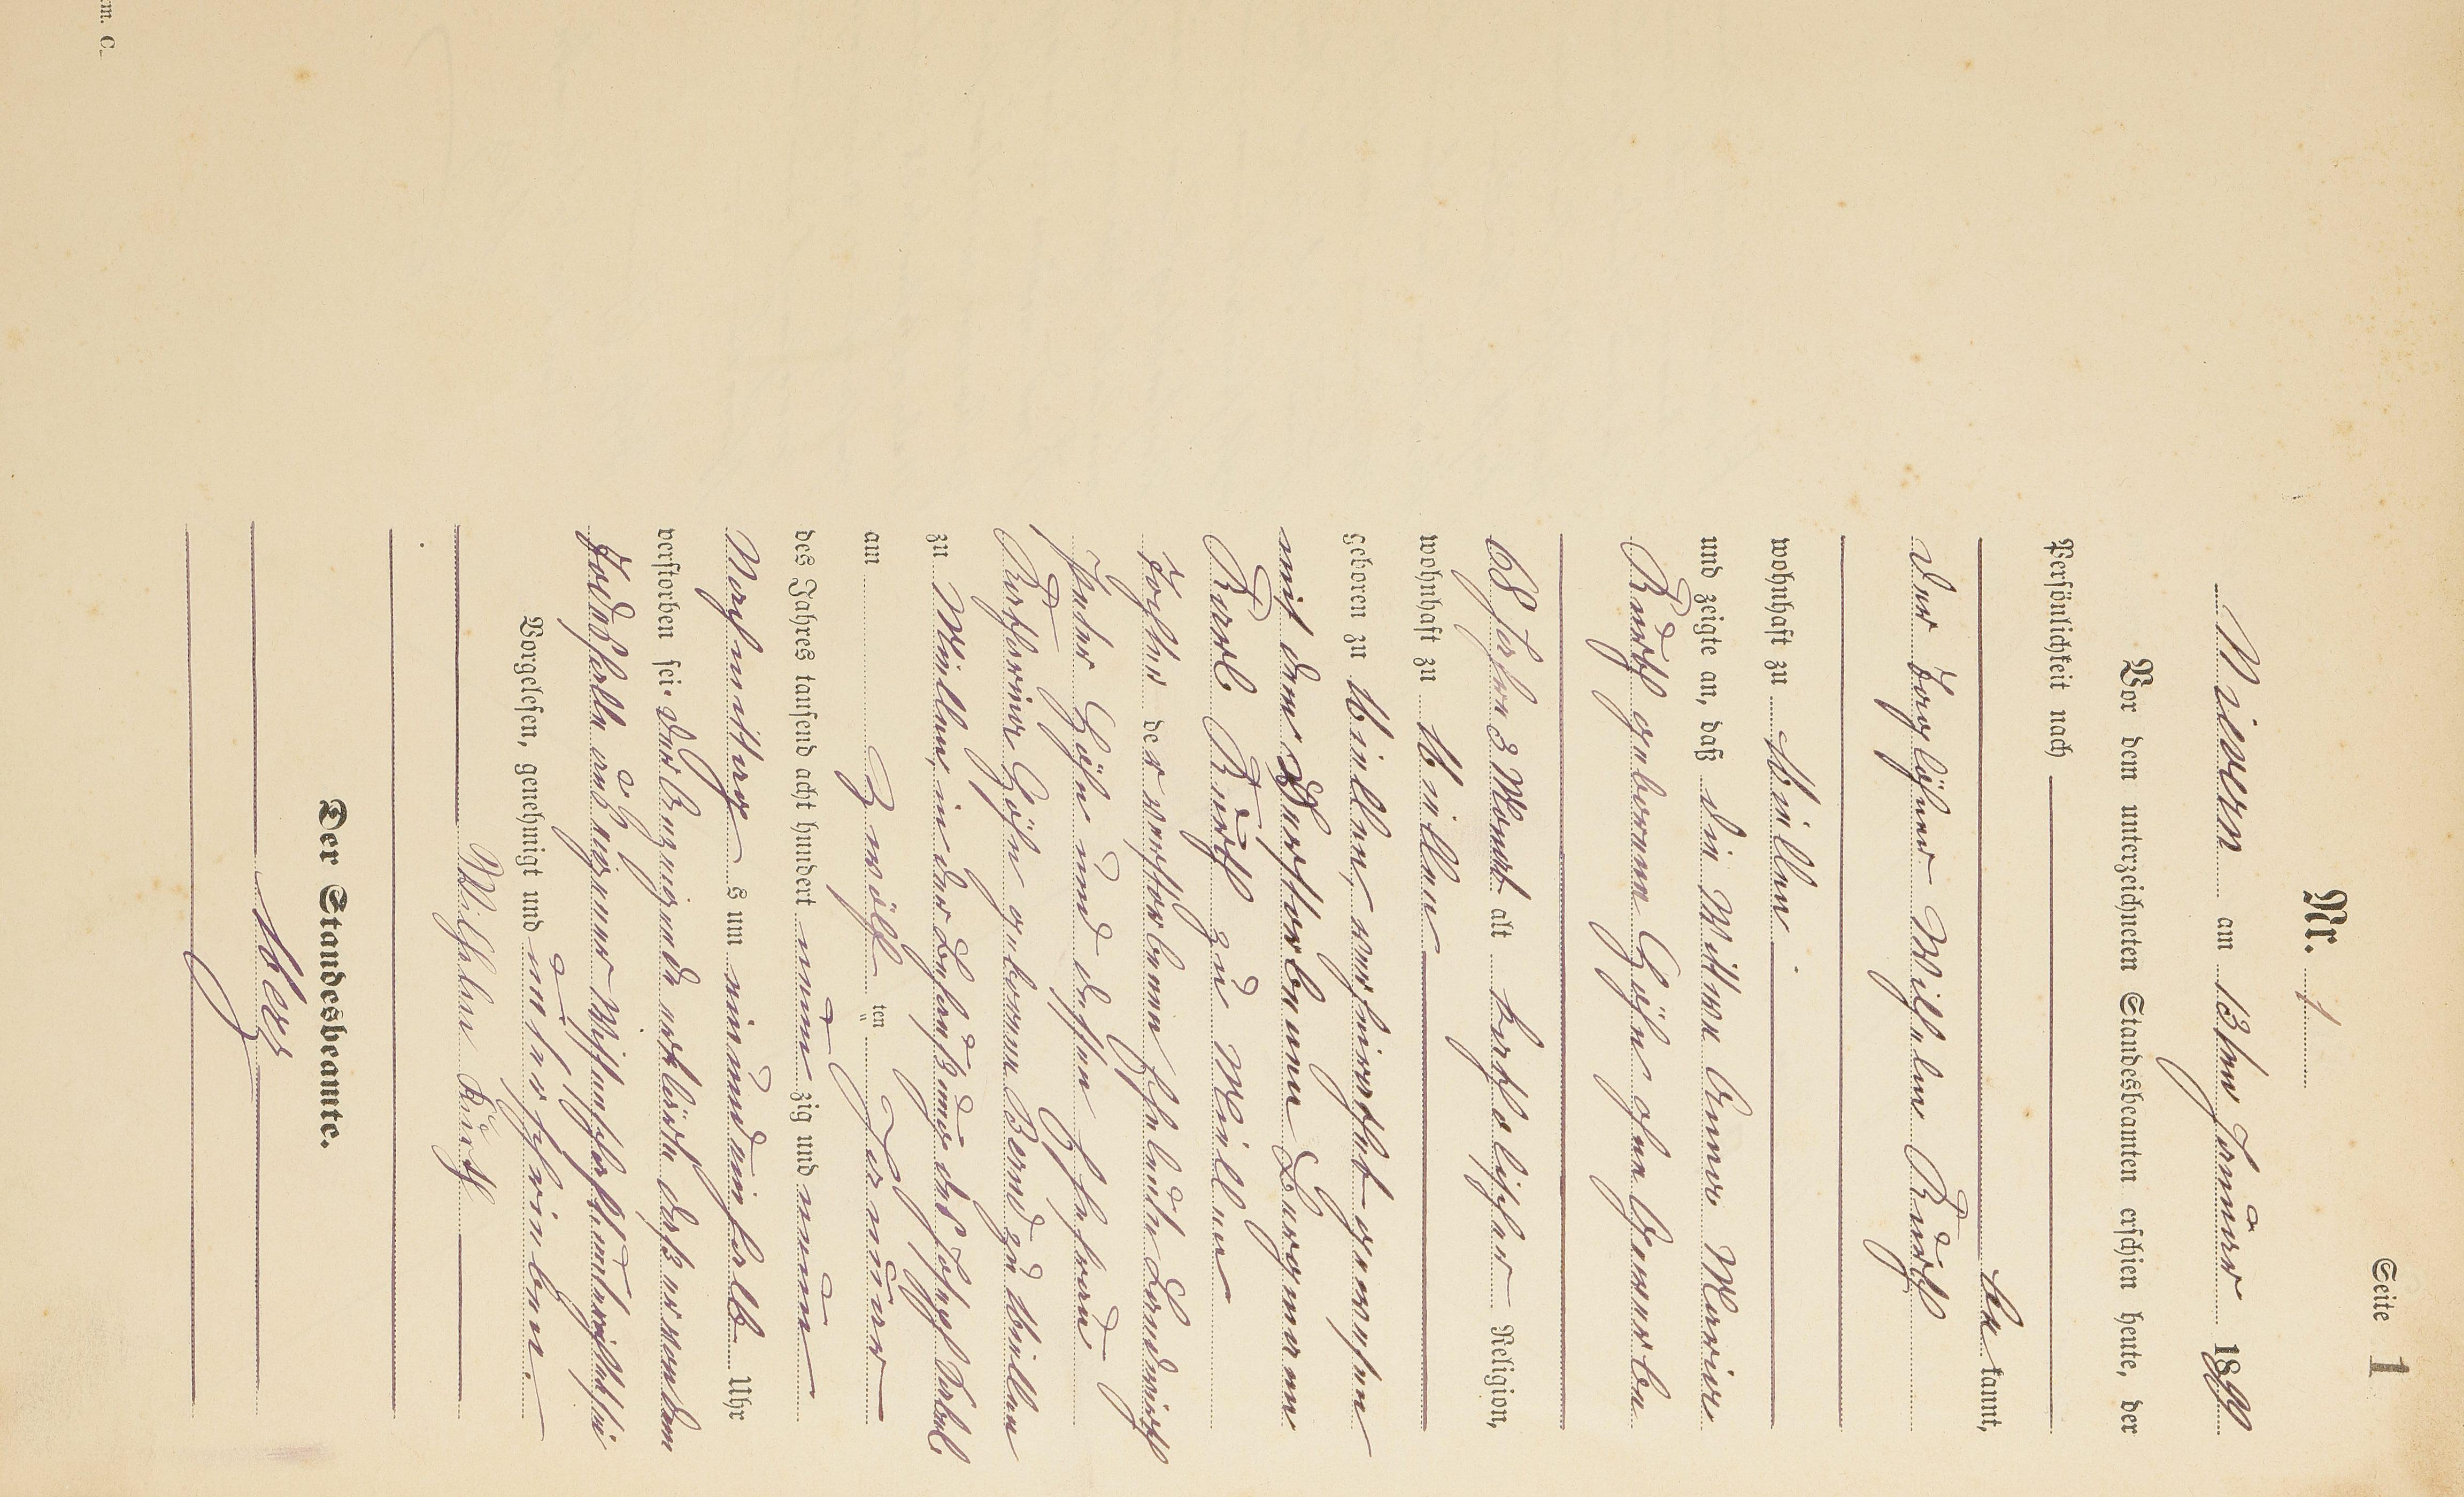 Seite 1
Nr. 1
Nievern am 13ten Januar 1899
Vor dem unterzeichneten Standesbeamten erschien heute, der
Persönlichkeit nach
be kannt,
der Taglöhner Wilhelm Kurth
wohnhaft zu Miellen
und zeigte an, daß die Wittwe Anna Maria
Kurth geborene Höhn ohne Gewerbe
68 Jahre 3 Monat alt katholischer Religion,
wohnhaft zu Miellen
geboren zu Miellen, verheirathet gewesen
mit dem Verstorbenen Bergmann
Karl Kurth zu Miellen
Tochter der verstorbenen Eheleute Landwirth
Peter Höhn und dessen Ehefrau
Katharina Höhn geborene zu Miellen
zu Miellen, in der Behausung des Joseph
am zwölf ten Januar
des Jahres tausend acht hundert neun zig und neun
Nachmittag s um ein und ein halb Uhr
verstorben sei. der Anzeigende erklärte daß er von dem
Todesfalle aus eigener Wissenschaft unterrichtet sei
Vorgelesen, genehmigt und unterschrieben.
Wilhelm Kurth
Der Standesbeamte.
rm. C.